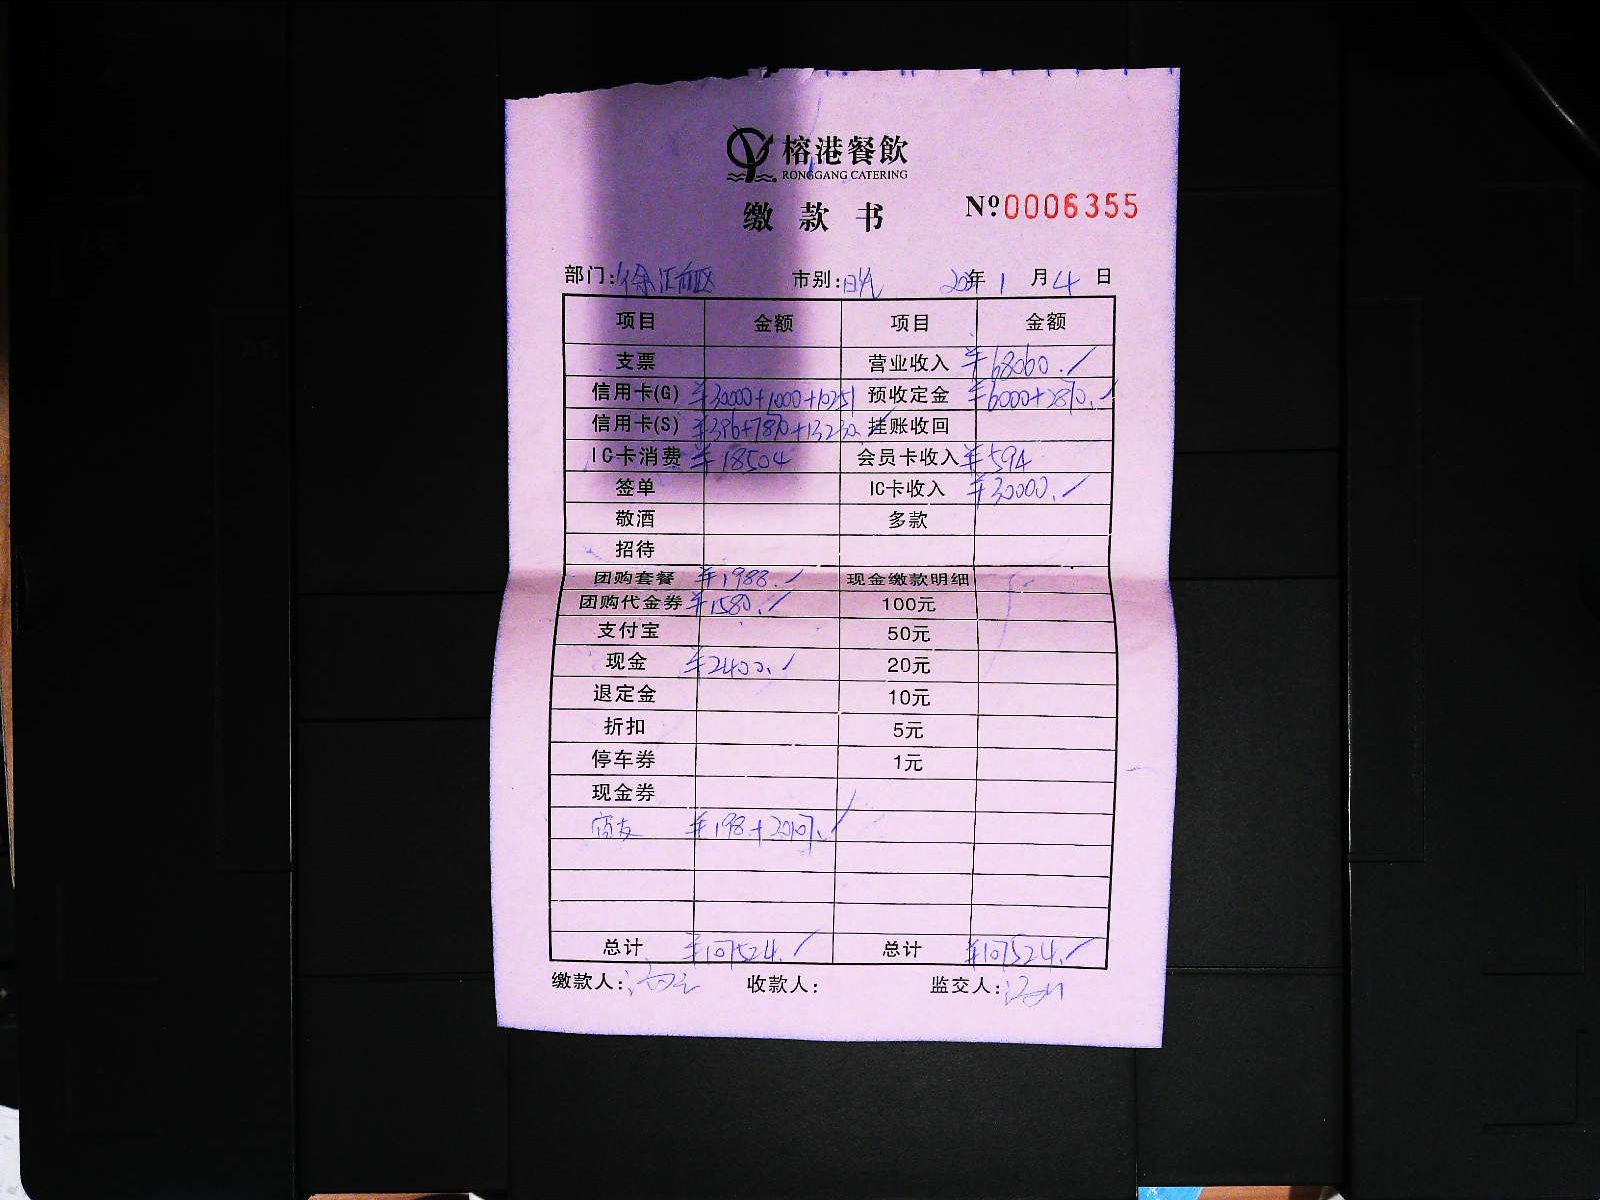 榕港餐飲
RONGGANG CATERING
缴款书 Nº:0006355
部门: 市别: 20年 1 月 4 日
项目 金额 项目 金额
支票 营业收入 ¥68060.
信用卡(G) ¥30000+1000+10251 预收定金 ¥6000+2870.
信用卡(S) ¥396+7870+13230. 挂账收回
IC卡消费 ¥18504 会员卡收入 ¥594
签单 IC卡收入 ¥30000.
敬酒 多款
招待
团购套餐 ¥1988. 现金缴款明细
团购代金券 ¥1580. 100元
支付宝 50元
现金 ¥2400. 20元
退定金 10元
折扣 5元
停车券 1元
现金券
商友 ¥198+20107.
总计 ¥107524. 总计 ¥107524.
缴款人: 收款人: 监交人: